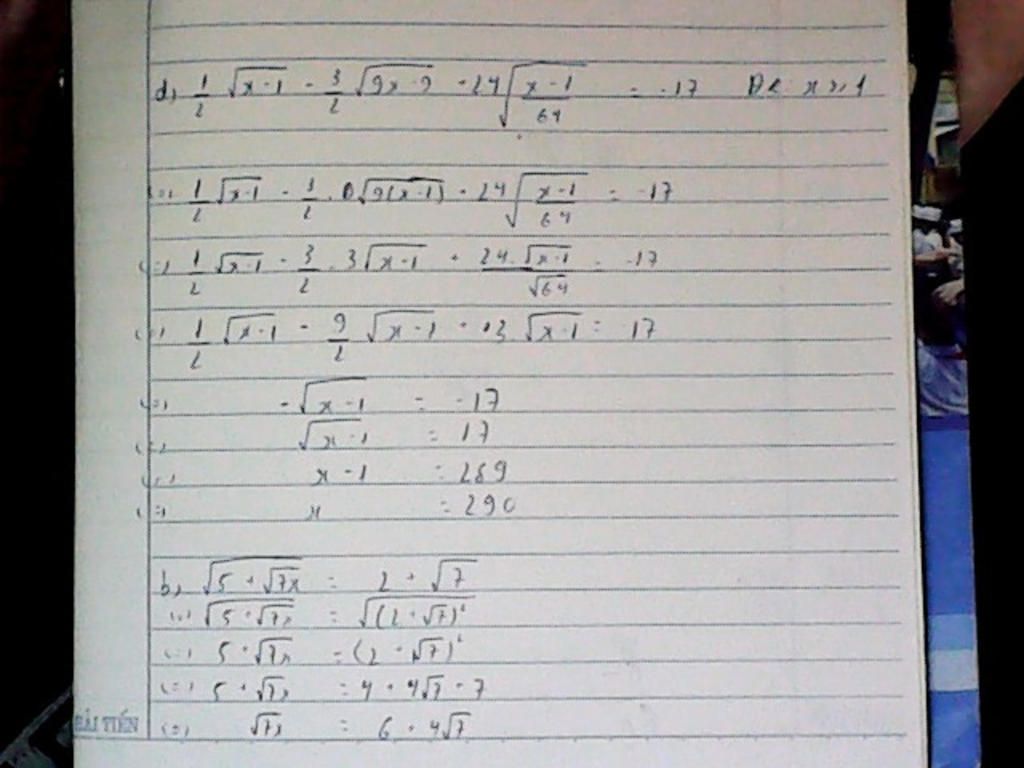 d, 1/2 √(x-1) - 3/2 √(9x-9) + 24 √((x-1)/64) = -17 ĐK: x ≥ 1
<=> 1/2 √(x-1) - 3/2 . √(9(x-1)) + 24 √((x-1)/64) = -17
<=> 1/2 √(x-1) - 3/2 . 3√(x-1) + 24.√(x-1)/√64 = -17
<=> 1/2 √(x-1) - 9/2 √(x-1) + 3 √(x-1) = -17
<=> -√(x-1) = -17
<=> √(x-1) = 17
<=> x-1 = 289
<=> x = 290
b, √(5+√7x) = 2+√7
<=> √(5+√7x) = √((2+√7)²)
<=> 5+√7x = (2+√7)²
<=> 5+√7x = 4+4√7+7
<=> √7x = 6+4√7
HẢI TIẾN